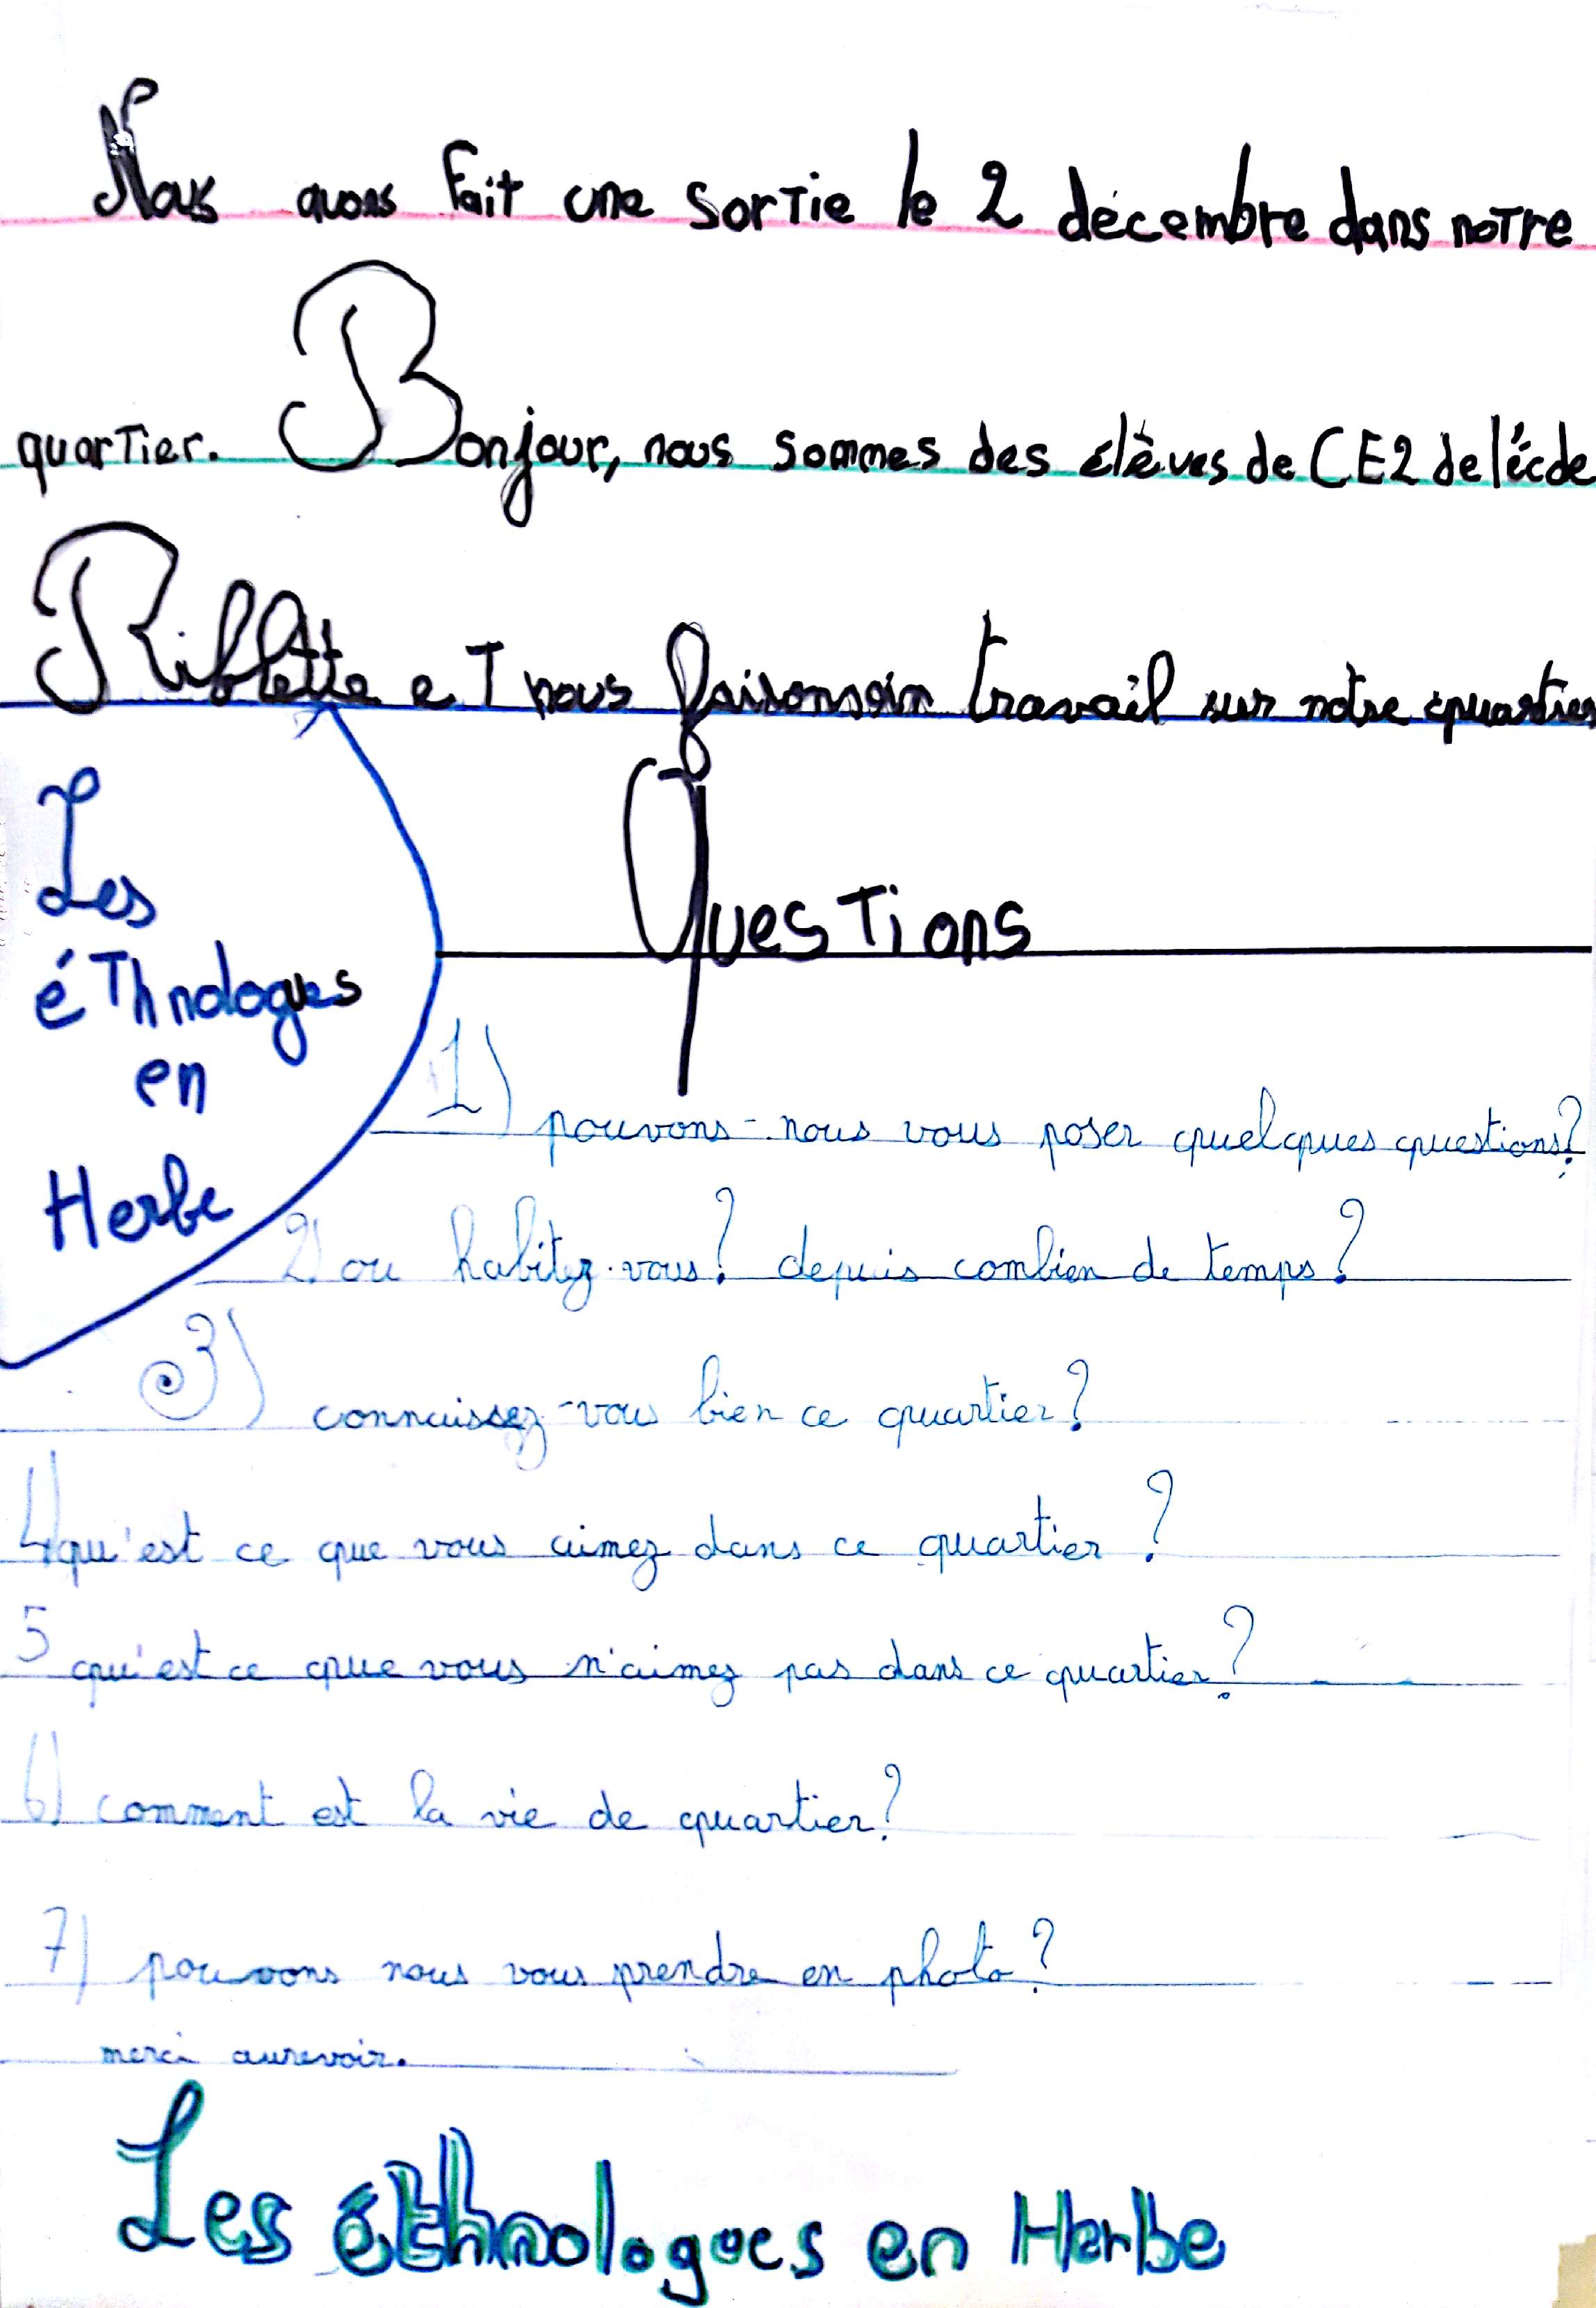 Nous avons fait une sortie le 2 décembre dans notre
quartier. Bonjour, nous sommes des élèves de CE2 de l'école
Riblette et nous faisons un travail sur notre quartier
Les
éThnologues
en
Herbe
Questions
1) pouvons-nous vous poser quelques questions?
2) ou habitez-vous? depuis combien de temps?
3) connaissez-vous bien ce quartier?
4) qu'est ce que vous aimez dans ce quartier?
5 qu'est ce que vous n'aimez pas dans ce quartier?
6) comment est la vie de quartier?
7) pouvons nous vous prendre en photo?
merci aurevoir.
Les éthnologues en Herbe